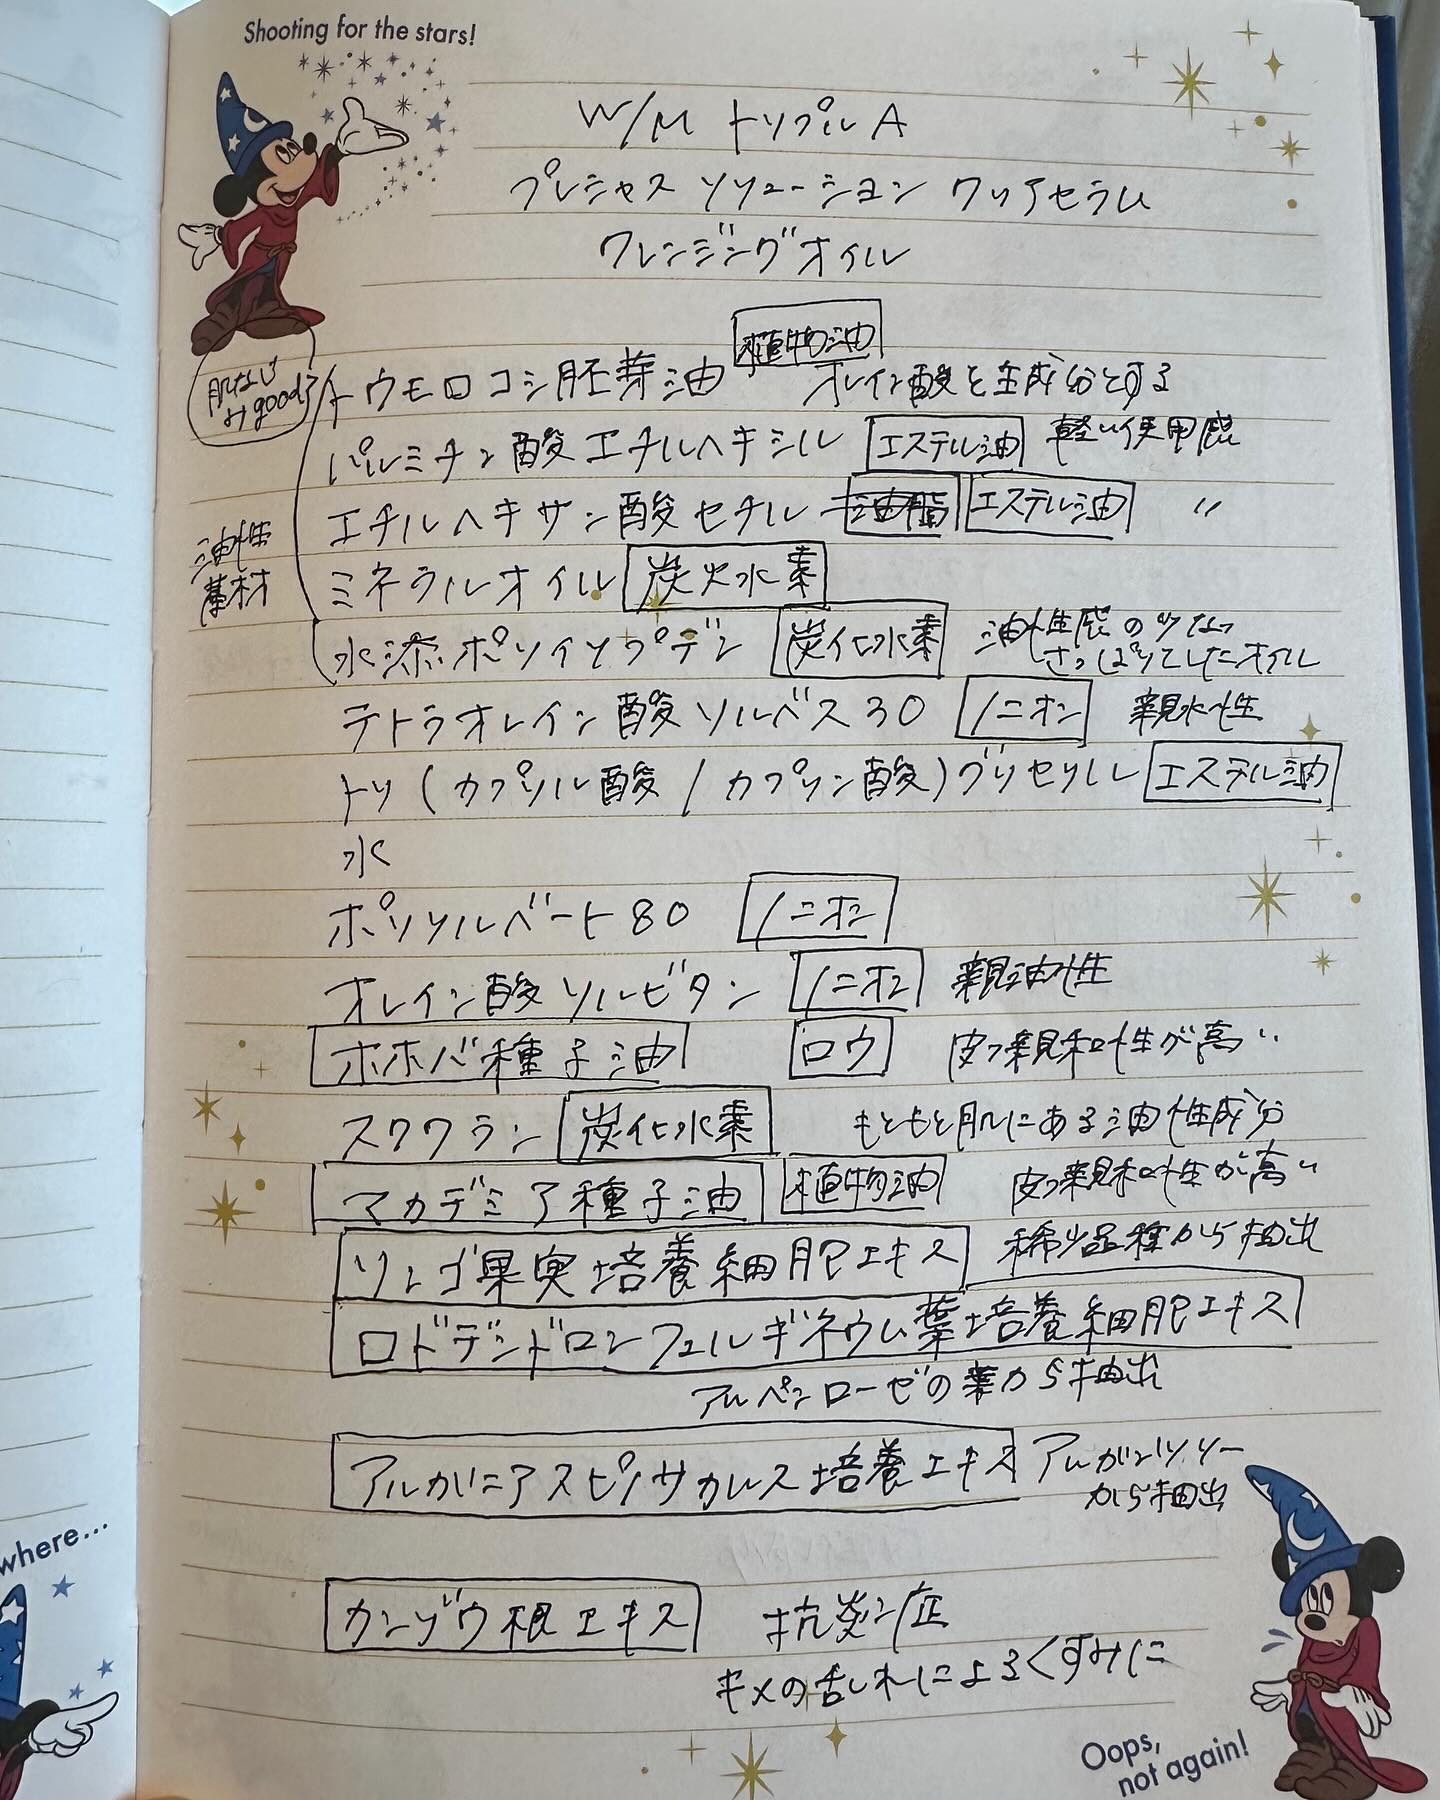 Shooting for the stars!
W/M トリプルA
プレシャス ソリューション クリアセラム
クレンジングオイル
植物油
肌なじみgood?
トウモロコシ胚芽油 オレイン酸を主成分とする
パルミチン酸エチルヘキシル エステル油 軽い使用感
エチルヘキサン酸セチル 油脂 エステル油 〃
油性基材
ミネラルオイル 炭火水素
水添ポリイソブデン 炭化水素 油性感の少ない
さっぱりしたオイル
テトラオレイン酸ソルベス30 ノニオン 親水性
トリ(カプリル酸/カプリン酸)グリセリル エステル油
水
ポリソルベート80 ノニオン
オレイン酸ソルビタン ノニオン 親油性
ホホバ種子油 ロウ 皮フ親和性が高い
スクワラン 炭化水素 もともと肌にある油性成分
マカデミア種子油 植物油 皮フ親和性が高い
リンゴ果実培養細胞エキス 稀少品種から抽出
ロドデンドロンフェルギネウム葉培養細胞エキス
アルペンローゼの葉から抽出
アルガニアスピノサカルス培養エキス アルガンツリー
から抽出
カンゾウ根エキス 抗炎症
キメの乱れによるくすみに
where...
Oops,
not again!